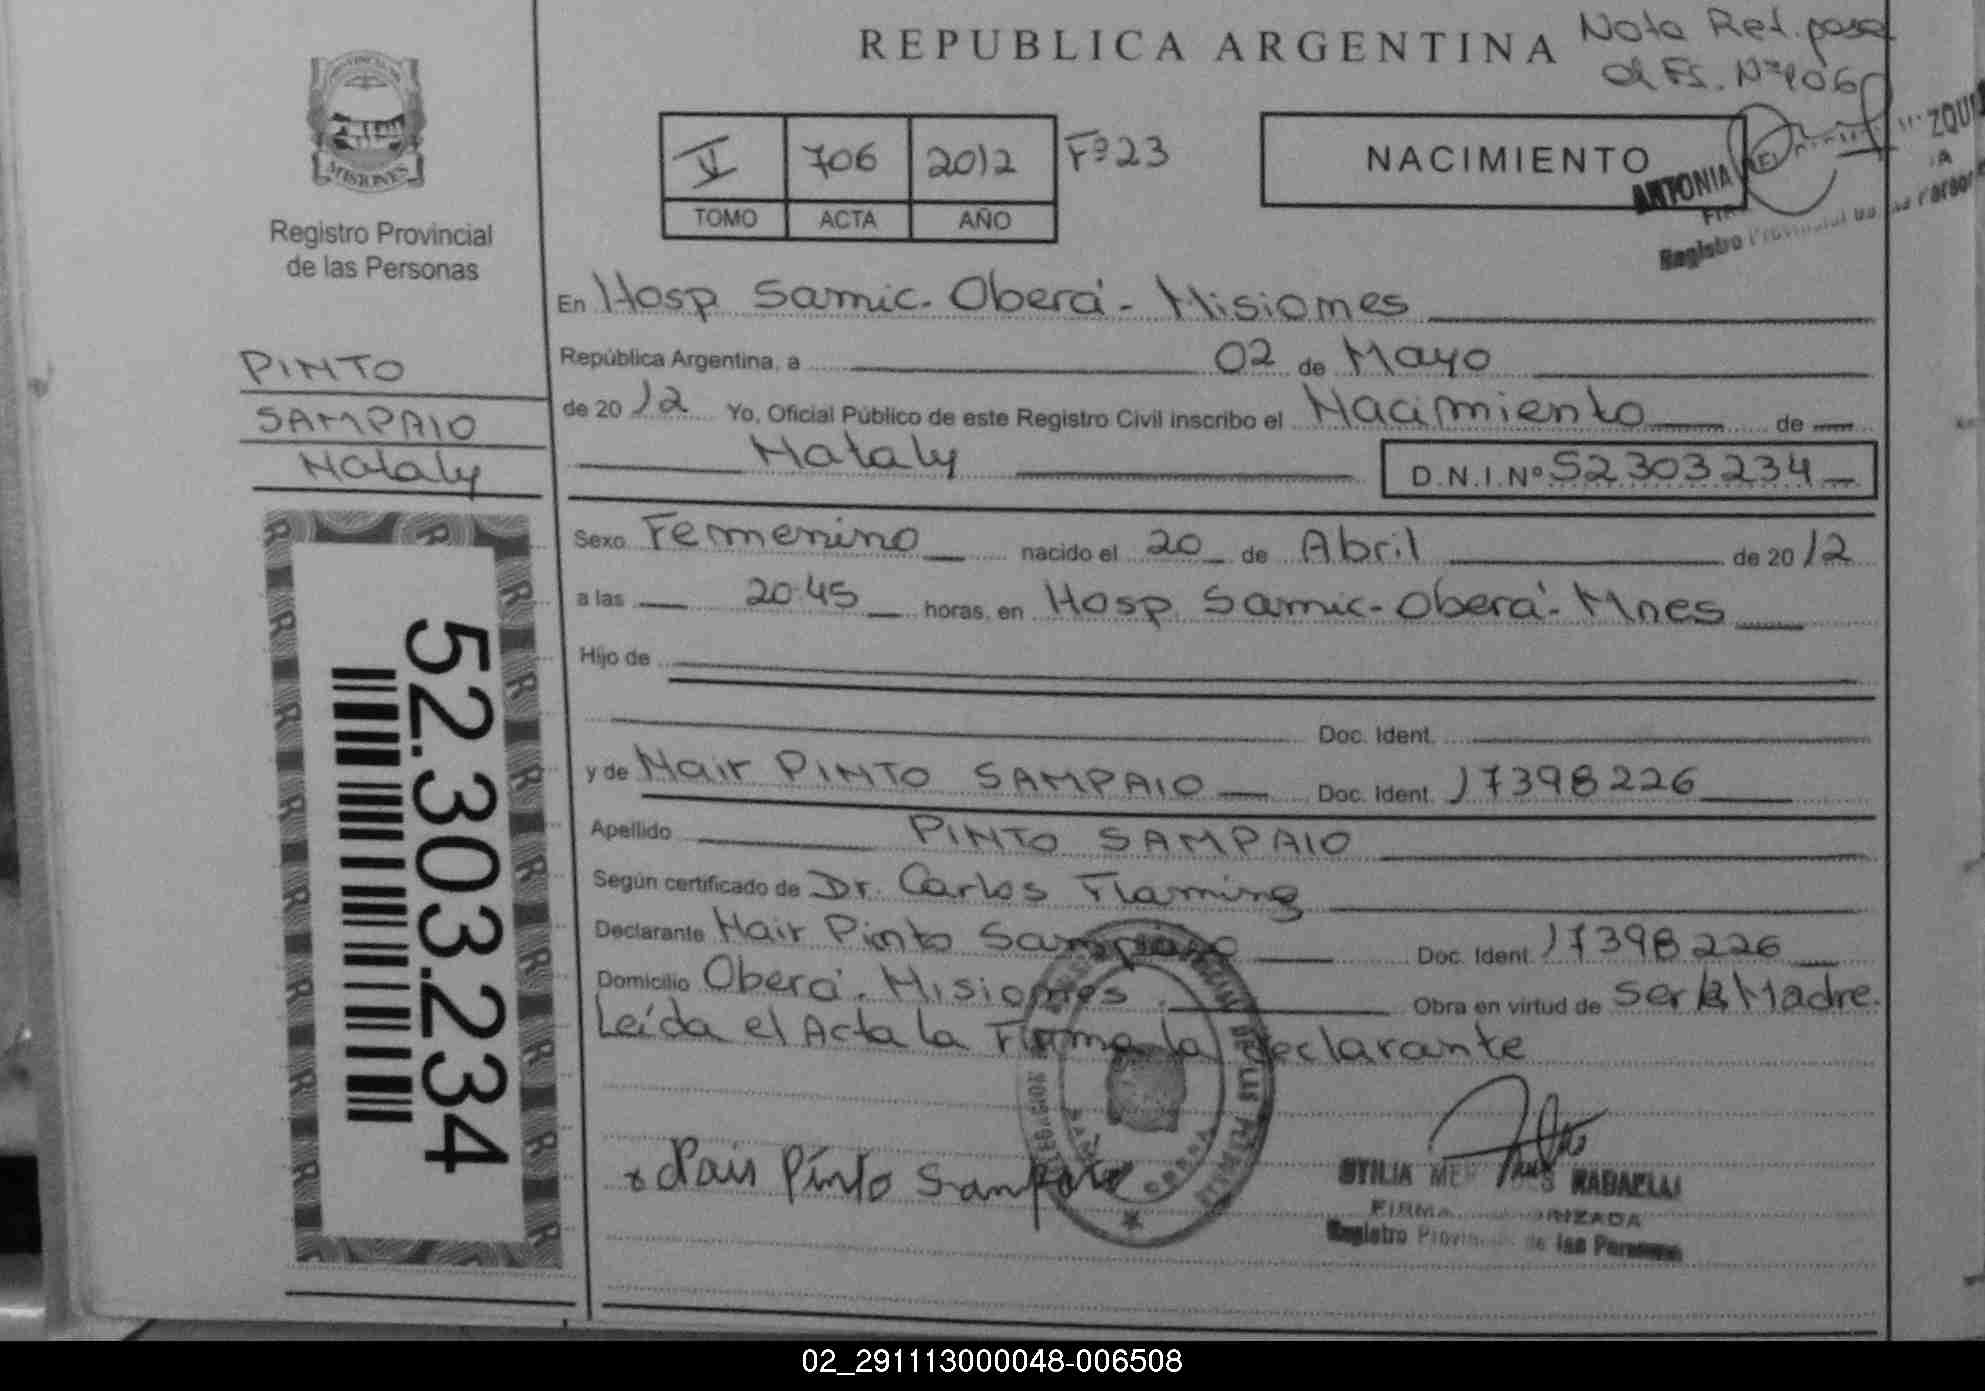 REPUBLICA ARGENTINA
Nota Ref. pasa
al Fs. Nº 106
PROVINCIA DE
MISIONES
Registro Provincial
de las Personas
V 706 2012 Fº 23
TOMO ACTA AÑO
NACIMIENTO
ANTONIA
Registro Provincial de las Personas
En Hosp Samic - Oberá - Misiones
República Argentina, a 02 de Mayo
de 2012 Yo, Oficial Público de este Registro Civil inscribo el Nacimiento de
Nataly D.N.I.Nº 52303234
PINTO
SAMPAIO
Nataly
52.303.234
Sexo Femenino nacido el 20 de Abril de 2012
a las 20:45 horas, en Hosp. Samic - Oberá - Mnes
Hijo de
Doc. Ident.
y de Nair PINTO SAMPAIO Doc. Ident. 17398226
Apellido PINTO SAMPAIO
Según certificado de Dr. Carlos Flaming
Declarante Nair Pinto Sampaio Doc. Ident. 17398226
Domicilio Oberá - Misiones. Obra en virtud de ser la Madre.
Leída el Acta la Firma la Declarante
x Nair Pinto Sampaio
RABAELLI
FIRMA AUTORIZADA
Registro Provincial de las Personas
02_291113000048-006508